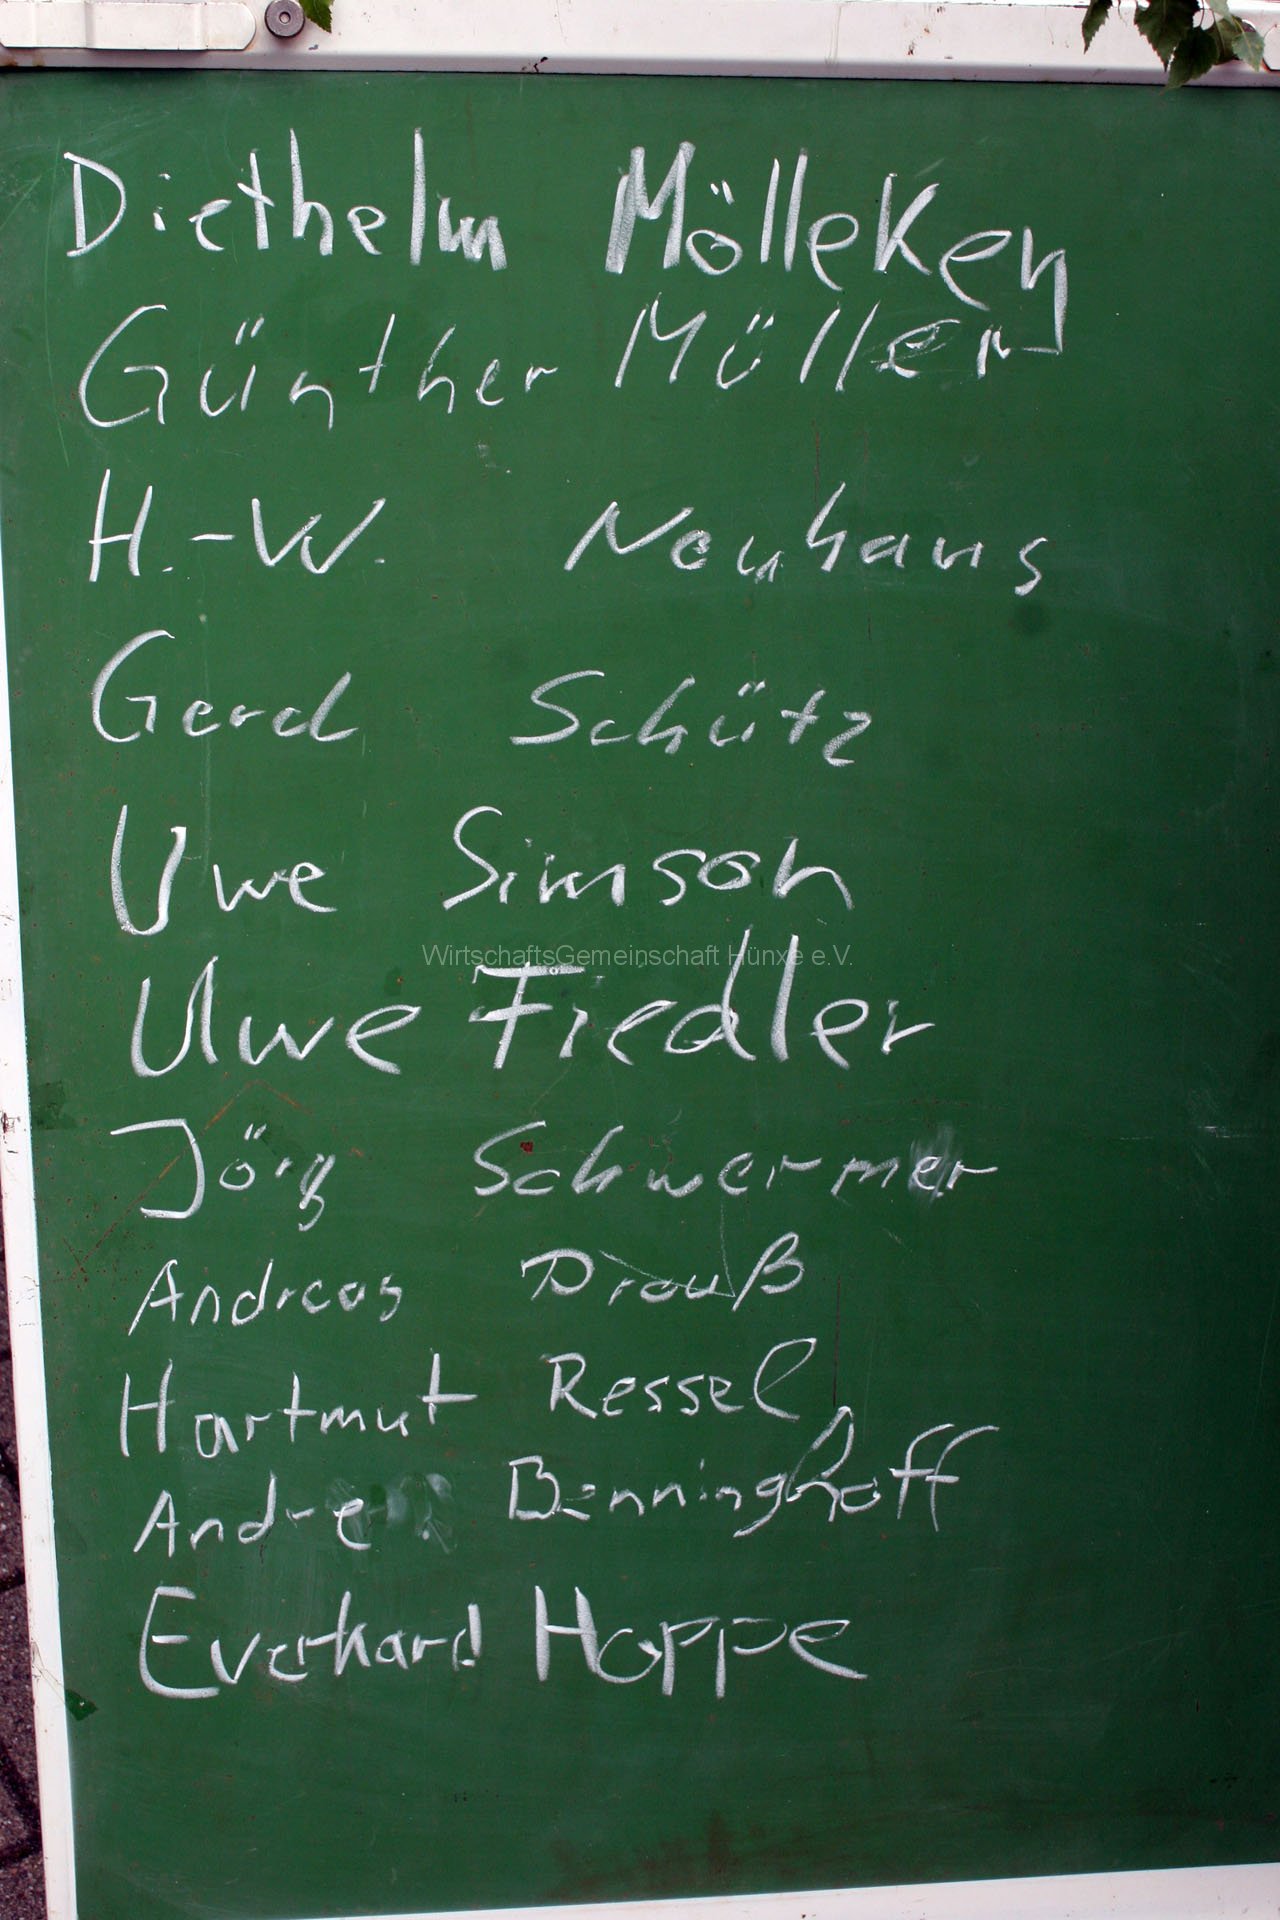 Diethelm Mölleken
Günther Müller
H.-W. Neuhaus
Gerd Schütz
Uwe Simson
WirtschaftsGemeinschaft Hünxe e.V.
Uwe Fiedler
Jörg Schwermer
Andreas Drauß
Hartmut Ressel
Andre Benninghoff
Everhard Hoppe